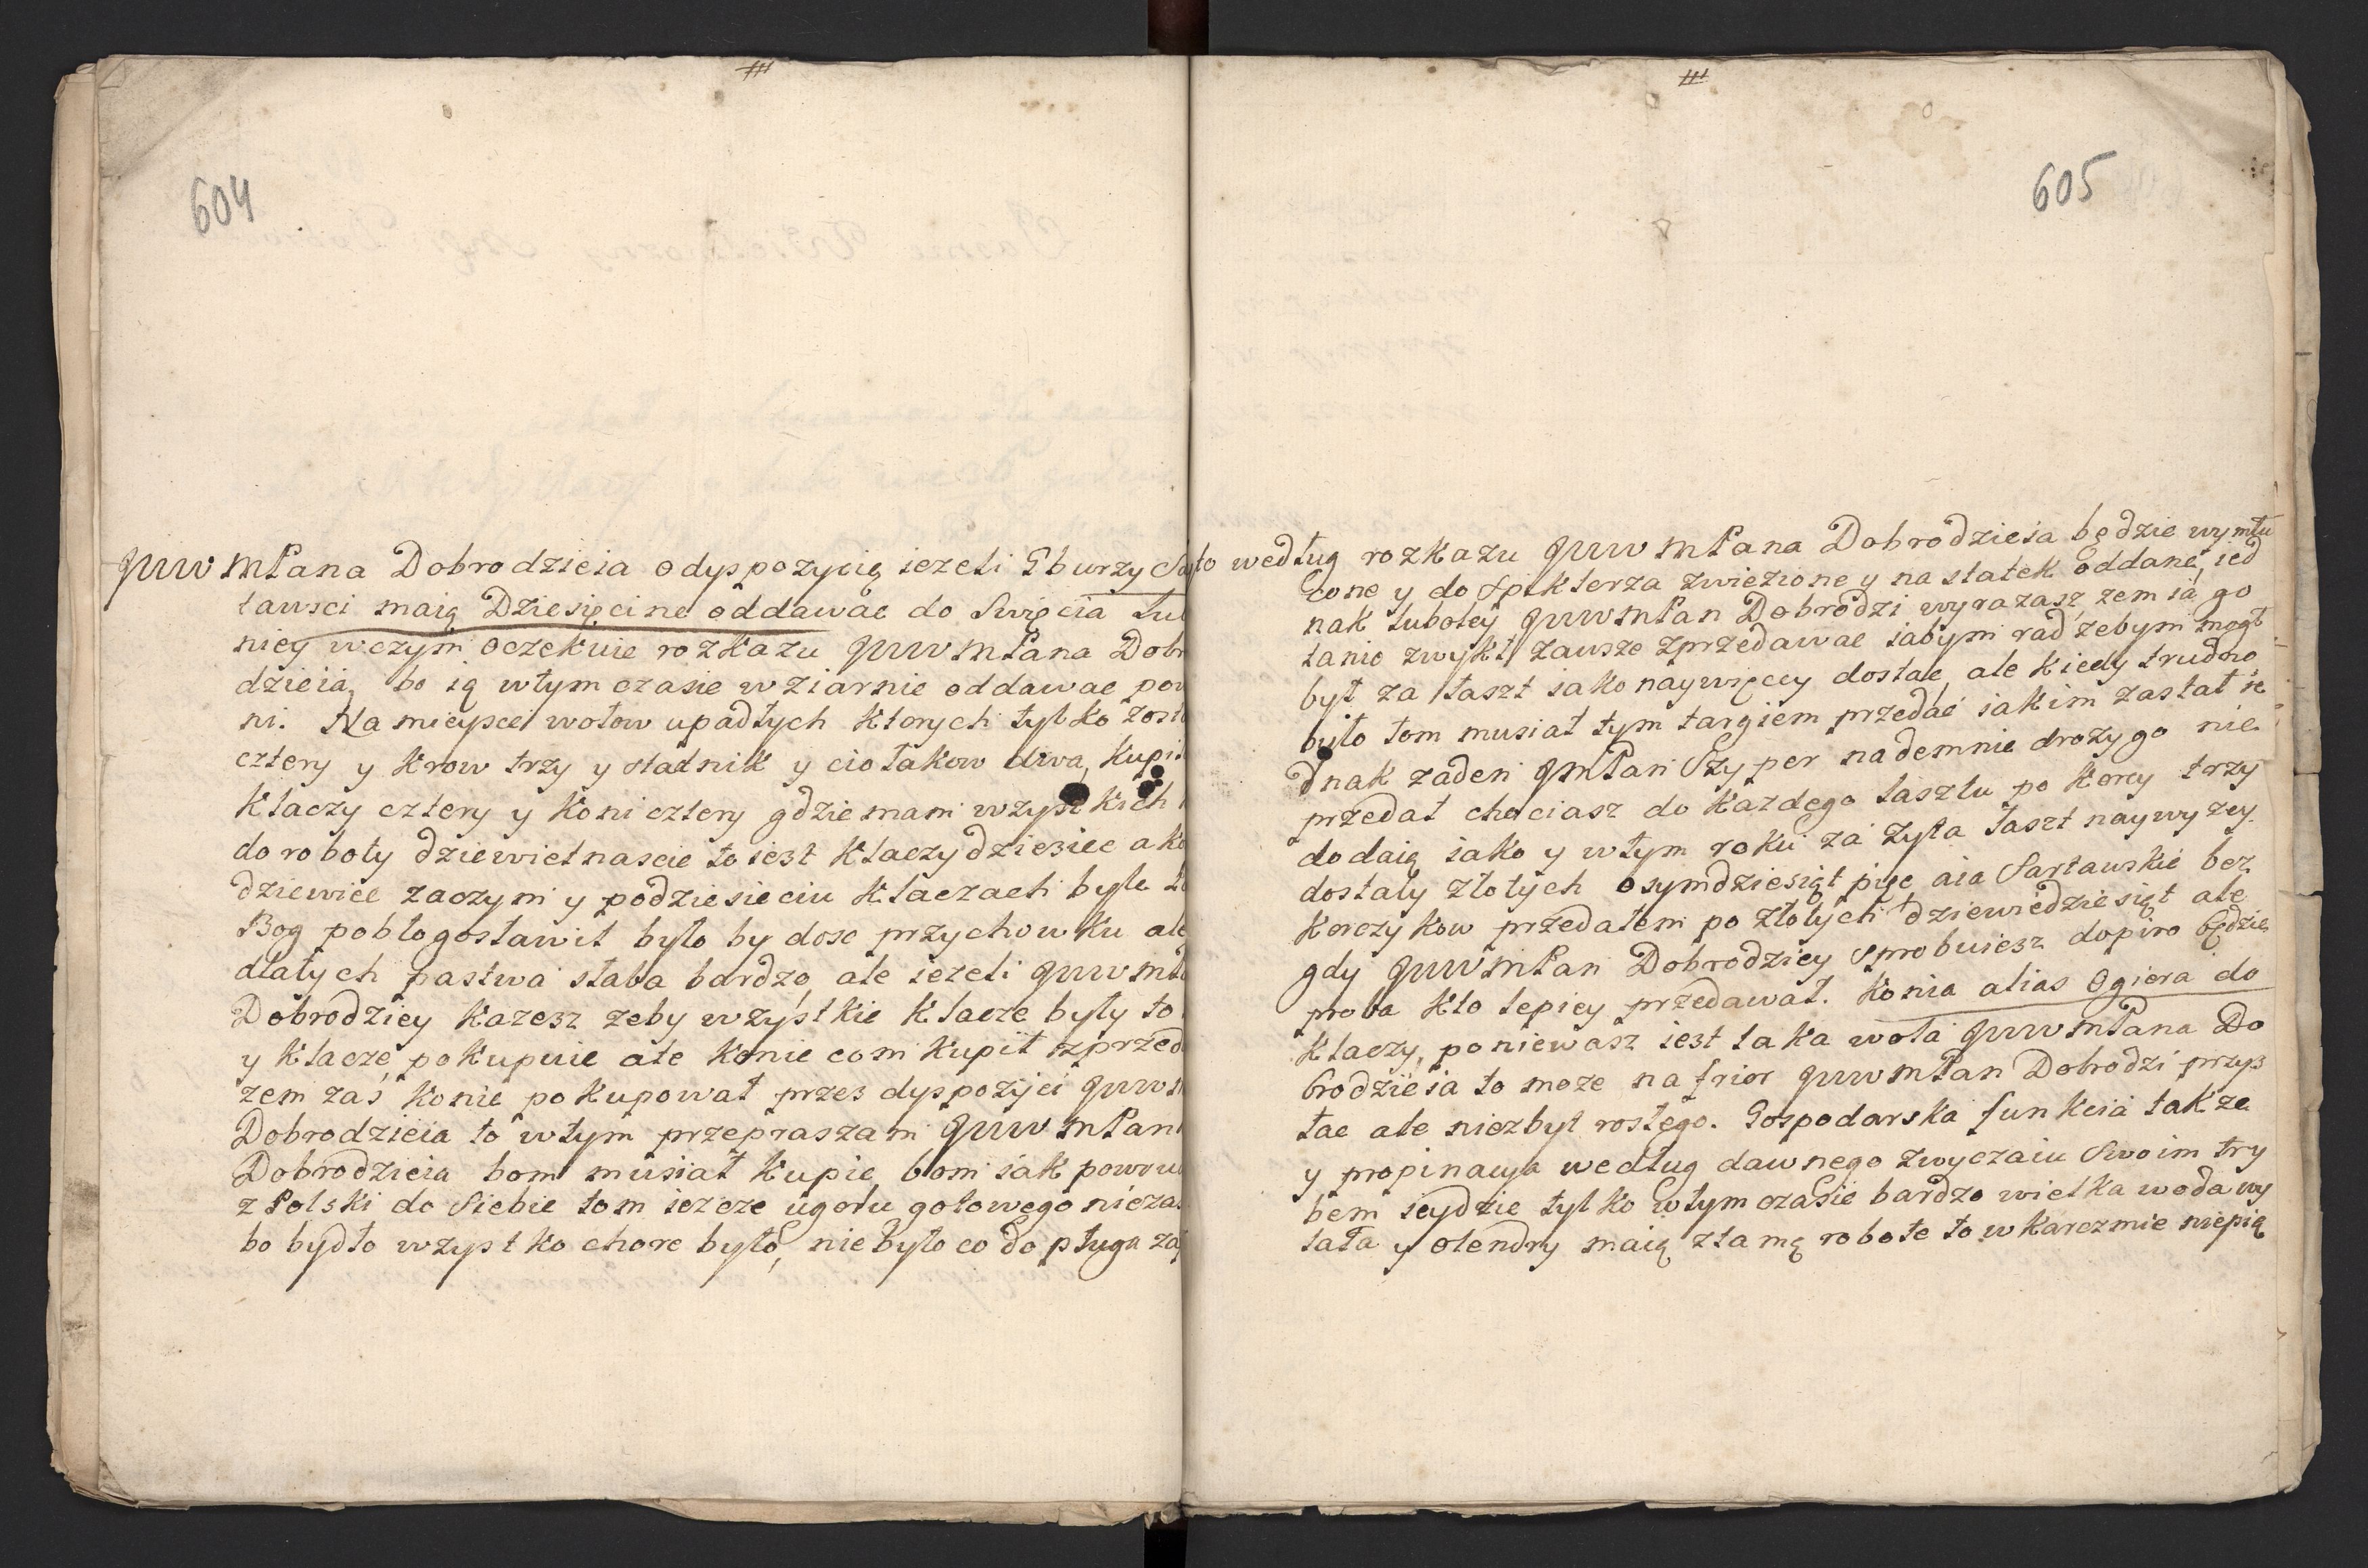 604
JWW MPana Dobrodzieia o dyspozycią iezeli Gburzy Sar
tawsci maią Dziesięcine oddawac do Swięcia lub
niey wczym oczekuie rozkazu JWW MPana Dobr
dzieia, bo ią wtym czasie w ziarnie oddawac pow
ni. Na mieysce wołow upadłych ktorych tylko zost
cztery y krow trzy y stadnik y ciołakow dwa, kupi
klaczy cztery y koni cztery gdzie mam wzystkich
do roboty dziewietnascie to iest klaczy dziesiec a ko
dziewiec zaczym y podziesieciu klaczach byle
Bog pobłogosławił było by dosc przychowku ale
dlatych pastwa słaba bardzo, ale iezeli JWW MP
Dobrodziey kazesz zeby wzystkie klacze były to
y klacze pokupuie ale konie com kupił zprzed
zem zas konie pokupował przez dyspozyci JWW
Dobrodzieia to wtym przepraszam JWW MPan
Dobrodzieia bom musiał kupic, bom iak powru
z Polski do Siebie tom iezcze ugoru gotowego nieza
bo bydło wzystko chore było, nie było co do pługa za
605
to według rozkazu JWW MPana Dobrodzieia będzie wymłu
cone y do spiklerza zwiezione y na statek oddane, ied
nak lubotey JWW MPan Dobrodzi wyrazasz, zem ia go
tanio zwykł zawsze zprzedawac iabym rad zebym mogł
był za łaszt iako naywięcey dostac, ale kiedy trudno
było tom musiał tym targiem przedac iakim zastał ie
dnak zaden JMPan Szyper nademnie drozy go nie
przedał chociasz do kazdego łasztu po korcy trzy
dodaią iako y wtym roku za Zyta łaszt naywyzey
dostały złotych osymdziesiąt pięc aia Sartawskie bez
korczykow przedałem po złotych dziewiedziesiąt ale
gdy JWW MPan Dobrodziey sprobuiesz dopiro będzie
proba kto lepiey przedawał. Konia alias Ogiera do
klaczy, poniewasz iest taka wola JWW MPana Do
brodzieia to moze na frior JWW MPan Dobrodzi przys
łac ale niezbyt rosłego. Gospodarska funkcia takze
y propinacya według dawnego zwyczaiu Swoim try
bem ieydzie tylko wtym czasie bardzo wielka woda wy
lała y olendry maią z tamą robote to wkarczmie niepią